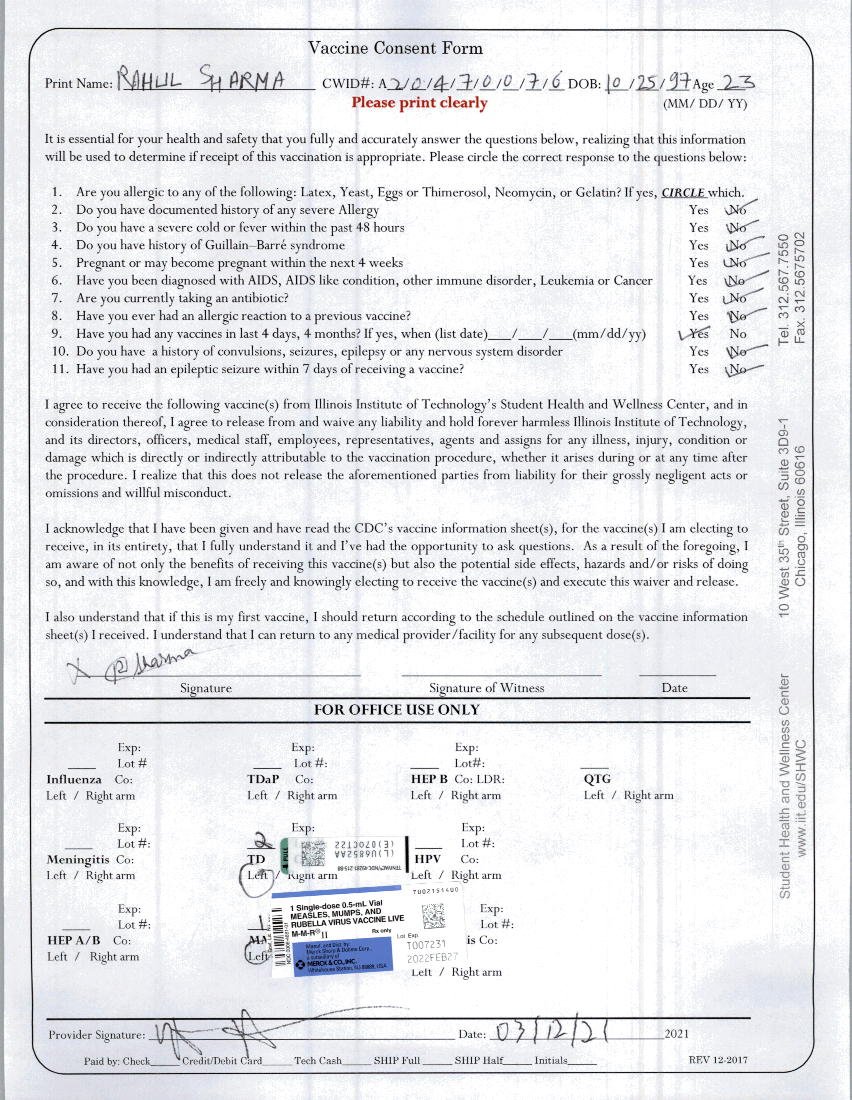 Vaccine Consent Form
Print Name: RAHUL SHARMA CWID#: A 2/0/4/7/0/0/7/6 DOB: 10/25/97 Age 23
Please print clearly (MM/ DD/ YY)
It is essential for your health and safety that you fully and accurately answer the questions below, realizing that this information
will be used to determine if receipt of this vaccination is appropriate. Please circle the correct response to the questions below:
1. Are you allergic to any of the following: Latex, Yeast, Eggs or Thimerosol, Neomycin, or Gelatin? If yes, CIRCLE which.
2. Do you have documented history of any severe Allergy Yes No
3. Do you have a severe cold or fever within the past 48 hours Yes No
4. Do you have history of Guillain–Barré syndrome Yes No
5. Pregnant or may become pregnant within the next 4 weeks Yes No
6. Have you been diagnosed with AIDS, AIDS like condition, other immune disorder, Leukemia or Cancer Yes No
7. Are you currently taking an antibiotic? Yes No
8. Have you ever had an allergic reaction to a previous vaccine? Yes No
9. Have you had any vaccines in last 4 days, 4 months? If yes, when (list date)___/___/___(mm/dd/yy) Yes No
10. Do you have a history of convulsions, seizures, epilepsy or any nervous system disorder Yes No
11. Have you had an epileptic seizure within 7 days of receiving a vaccine? Yes No
I agree to receive the following vaccine(s) from Illinois Institute of Technology's Student Health and Wellness Center, and in
consideration thereof, I agree to release from and waive any liability and hold forever harmless Illinois Institute of Technology,
and its directors, officers, medical staff, employees, representatives, agents and assigns for any illness, injury, condition or
damage which is directly or indirectly attributable to the vaccination procedure, whether it arises during or at any time after
the procedure. I realize that this does not release the aforementioned parties from liability for their grossly negligent acts or
omissions and willful misconduct.
I acknowledge that I have been given and have read the CDC's vaccine information sheet(s), for the vaccine(s) I am electing to
receive, in its entirety, that I fully understand it and I've had the opportunity to ask questions. As a result of the foregoing, I
am aware of not only the benefits of receiving this vaccine(s) but also the potential side effects, hazards and/or risks of doing
so, and with this knowledge, I am freely and knowingly electing to receive the vaccine(s) and execute this waiver and release.
I also understand that if this is my first vaccine, I should return according to the schedule outlined on the vaccine information
sheet(s) I received. I understand that I can return to any medical provider/facility for any subsequent dose(s).
X R Sharma
Signature Signature of Witness Date
FOR OFFICE USE ONLY
Exp: Exp: Exp:
Lot # Lot #: Lot#:
Influenza Co: TDaP Co: HEP B Co: LDR: QTG
Left / Right arm Left / Right arm Left / Right arm Left / Right arm
Exp: 2 Exp: Exp:
Lot #: Lot #:
Meningitis Co: TD HPV Co:
Left / Right arm Left / Right arm Left / Right arm
PULL
(L)U6852AA
(E)07OCT22
7002151400
1 Single-dose 0.5-mL Vial
MEASLES, MUMPS, AND
RUBELLA VIRUS VACCINE LIVE
M-M-R® II Rx only
Manuf. and Dist. by:
Merck Sharp & Dohme Corp.,
a subsidiary of
MERCK & CO., INC.
Whitehouse Station, NJ 08889, USA
Lot Exp.
T007231
2022FEB27
Exp: 1 Exp:
Lot #: Lot #:
HEP A/B Co: is Co:
Left / Right arm Left Left / Right arm
Provider Signature: Date: 03/12/21 2021
Paid by: Check_____ Credit/Debit Card_____ Tech Cash_____ SHIP Full _____ SHIP Half_____ Initials_____ REV 12-2017
Student Health and Wellness Center 10 West 35th Street, Suite 3D9-1 Tel. 312.567.7550
www.iit.edu/SHWC Chicago, Illinois 60616 Fax. 312.5675702